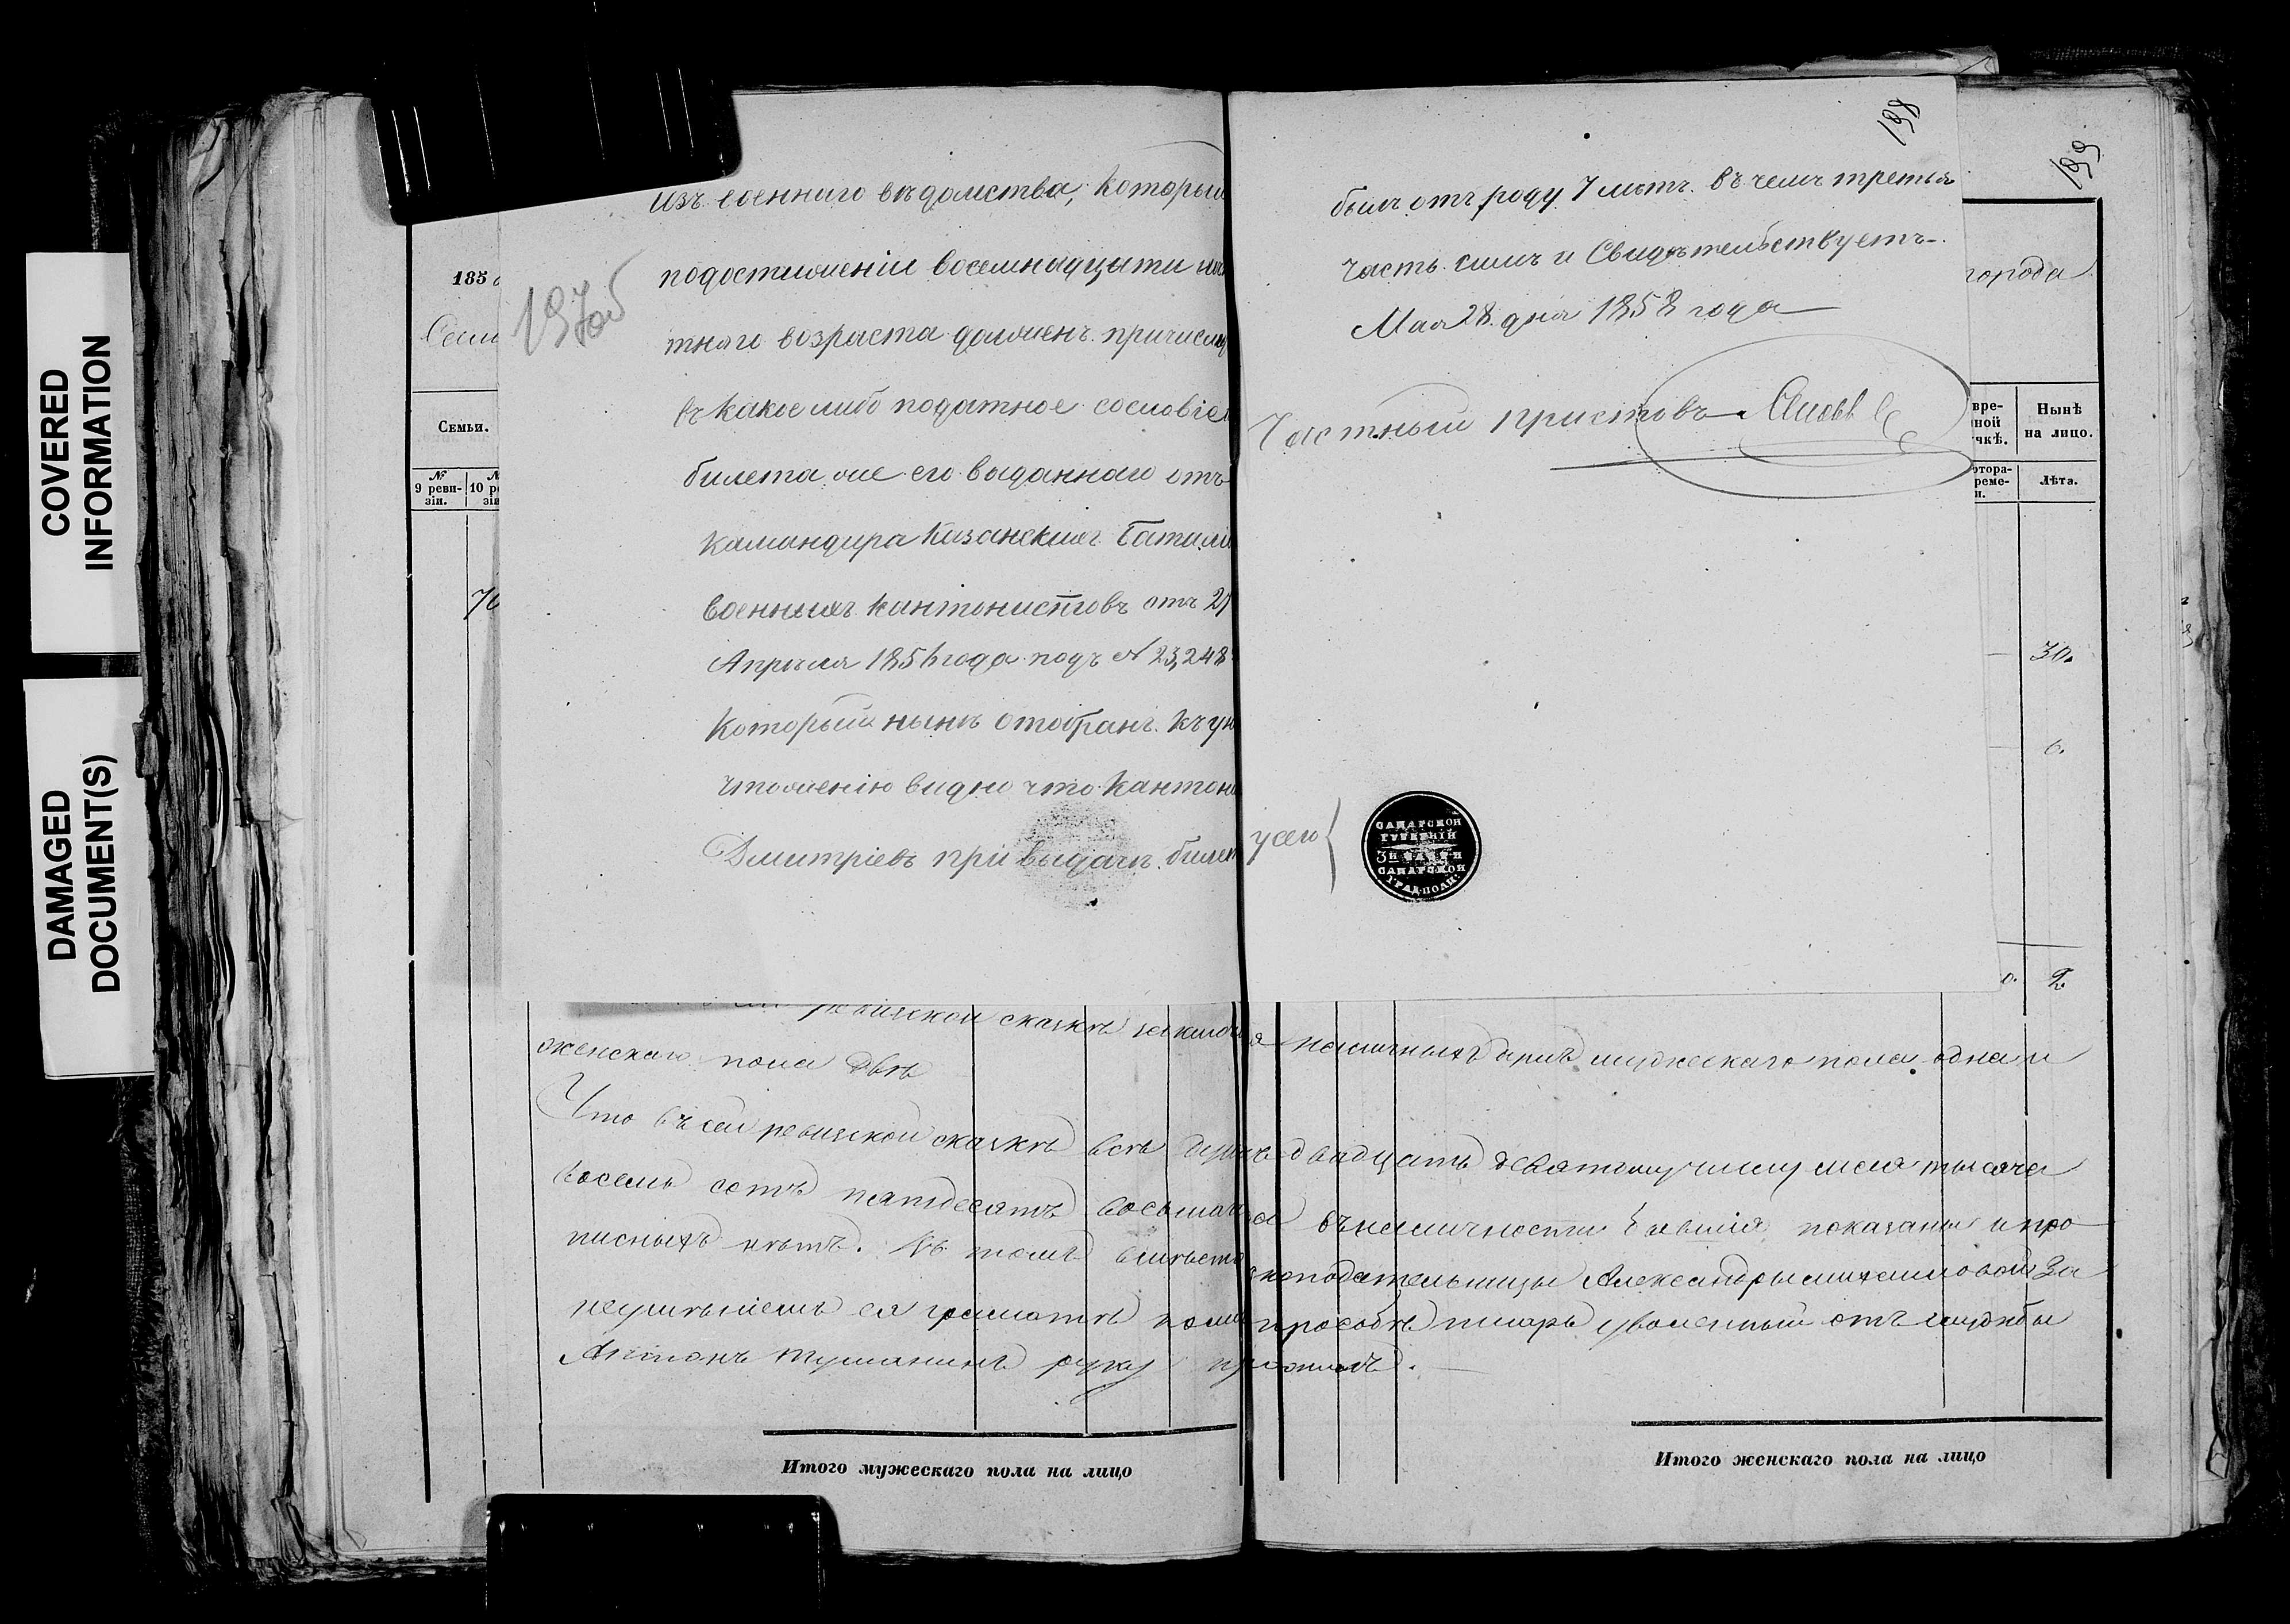 COVERED
INFORMATION
DAMAGED
DOCUMENT(S)
197об
изъ военнаго вѣдомства, который
подостиженіи восемнадцати лѣ
тняго возраста долженъ причисл
въ какое либо податное сословіе
билета же его выданнаго отъ
камандира Казанскихъ Батал
военныхъ кантонистовъ отъ 27
Апрѣля 185 года подъ № 23,248
который нынѣ отобранъ къ ун
чтоженію видно что кантон
Дмитріевъ при выдачѣ билет
198
былъ отъ роду 7 лѣтъ. въ чемъ третья
часть симъ и Свидѣтельствуетъ.
Мая 28 дня 1858 года
Частный приставъ
у сего
САМАРСКОЙ
ГУБЕРНІИ
3Й ЧАСТИ
САМАРСКОЙ
ГРАД:ПОЛИ:
199
185
города
Семьи.
№
9 реви-
зіи.
10 р
зі
вре-
ной
чкѣ.
Нынѣ
на лицо.
отора-
реме-
и.
Лѣта.
30.
6.
0. 2.
ревизской сказкѣ наличныхъ душъ мужескаго пола одна и
женскаго пола двѣ
Что въ сей ревизской сказкѣ всѣ душъ двадцать девятому числу мая тысяча
восемь сотъ пятдесятъ восьмаго въ наличности бывшія, показаны и про
писныхъ нѣтъ. Въ томъ вмѣсто Александры Михаиловой за
неумѣніемъ ея грамотѣ по просьбѣ писарь уволенный отъ службы
Антонъ Тушанинъ руку приложилъ.
Итого мужескаго пола на лицо
Итого женскаго пола на лицо